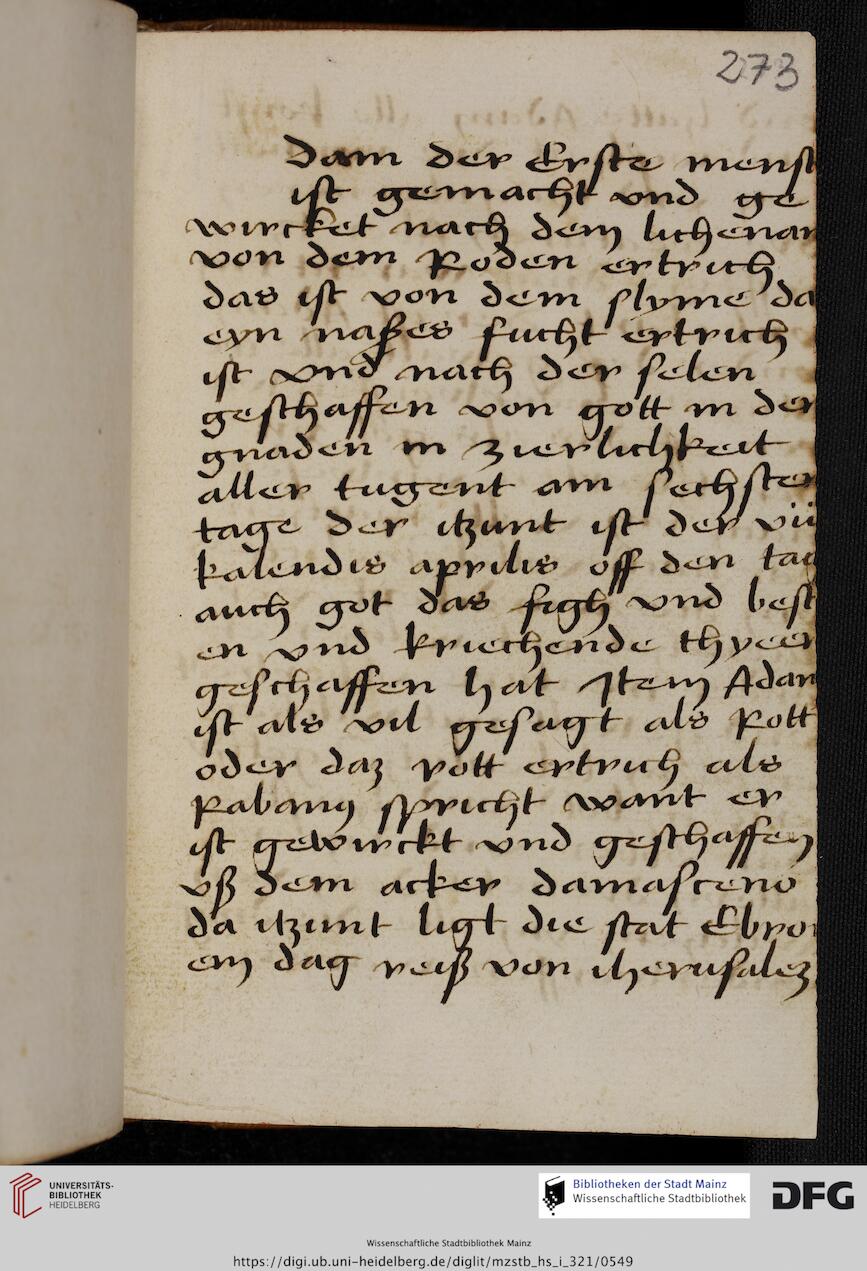 273
Dam der Erste mensc
ist gemacht vnd ge
wircket nach dem lichenam
von dem Roden ertrich
das ist von dem slyme da
eyn naßes fucht ertrich
ist vnd nach der selen
geschaffen von gott in der
gnaden in zierlichkeit
aller tugent am sechsten
tage der itzunt ist der vii
kalendis aprilis off den tag
auch got das figh vnd best
en vnd kriechende thyeer
geschaffen hat Item Adam
ist als vil gesagt als Rott
oder daz rott ertrich als
Rabanus spricht want er
ist gewirckt vnd geschaffen
vß dem acker damasceno
da itzunt ligt die stat Ebron
ein dag reiß von iherusalem
UNIVERSITÄTS-
BIBLIOTHEK
HEIDELBERG
Bibliotheken der Stadt Mainz
Wissenschaftliche Stadtbibliothek
DFG
Wissenschaftliche Stadtbibliothek Mainz
https://digi.ub.uni-heidelberg.de/diglit/mzstb_hs_i_321/0549